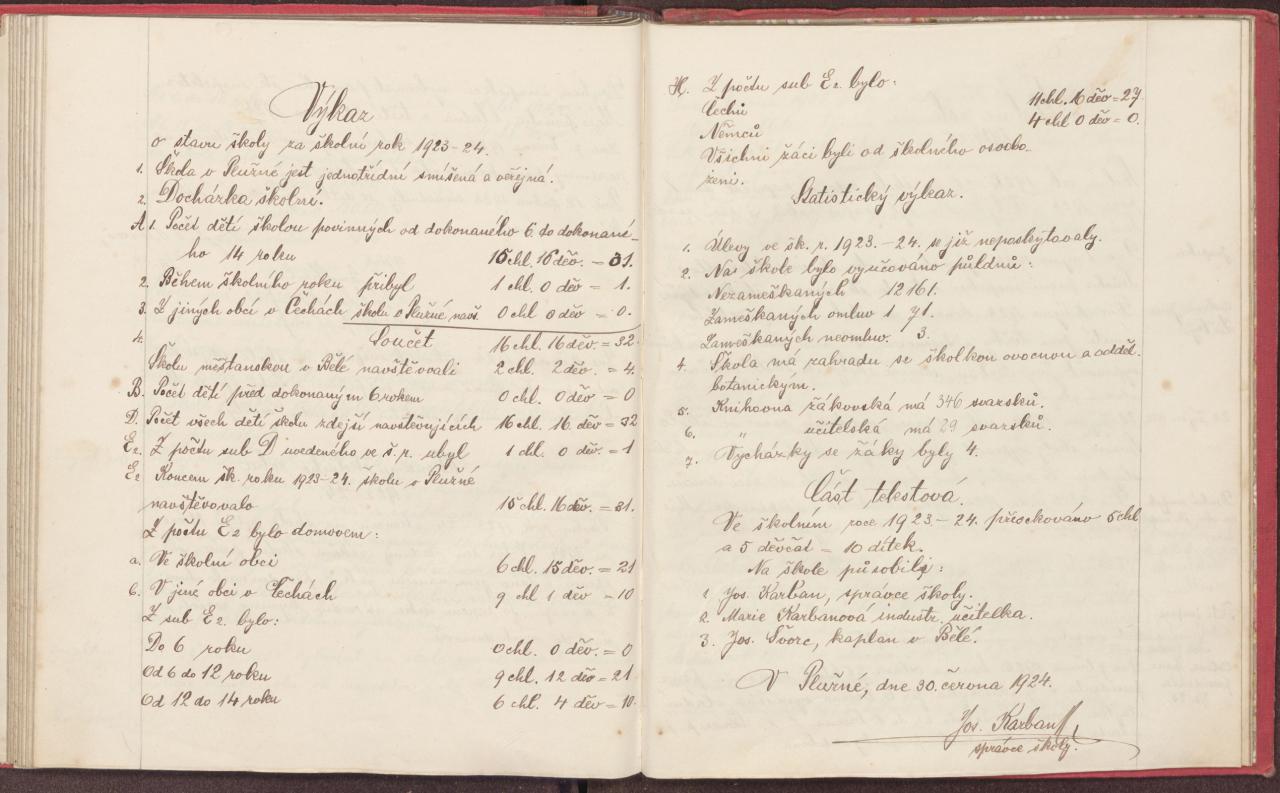 Výkaz
o stavu školy za školní rok 1923-24.
1. Škola v Plužné jest jednotřídní smíšená a veřejná.
2. Docházka školní.
A 1. Počet dětí školou povinných od dokonaného 6. do dokonané-
ho 14 roku 15 chl. 16 děv. = 31.
2. Během školního roku přibyl 1 chl. 0 děv = 1.
3. Z jiných obcí v Čechách školu v Plužné navš. 0 chl 0 děv = 0.
4. Součet 16 chl. 16 děv. = 32
Školu měšťanskou v Bělé navštěvovali 2 chl. 2 děv. = 4.
B. Počet dětí před dokonaným 6 rokem 0 chl. 0 děv = 0
D. Počet všech dětí školu zdejší navštěvujících 16 chl. 16 děv = 32
E2. Z počtu sub D uvedeného ve š. r. ubyl 1 chl. 0 děv = 1
E2 Koncem šk. roku 1923-24. školu v Plužné
navštěvovalo 15 chl. 16 děv. = 31.
Z počtu E2 bylo domovem:
a. Ve školní obci 6 chl. 15 děv. = 21
b. V jiné obci v Čechách 9 chl 1 děv = 10
Z sub E2. bylo:
Do 6 roku 0 chl. 0 děv = 0
Od 6 do 12 roku 9 chl. 12 děv = 21
Od 12 do 14 roku 6 chl. 4 děv = 10.
H. Z počtu sub E2 bylo:
Čechů 11 chl. 16 děv = 27.
Němců 4 chl 0 děv = 0.
Všichni žáci byli od školného osvobo-
zeni.
Statistický výkaz.
1. Úlevy ve šk. r. 1923.-24. se již neposkytovaly.
2. Na škole bylo vyučováno půldnů:
Nezameškaných 12161.
Zameškaných omluv 1 71.
Zameškaných neomluv. 3.
4. Škola má zahradu se školkou ovocnou a odděl.
botanickým.
5. Knihovna žákovská má 346 svazků.
6. " učitelská má 29 svazků.
7. Vycházky se žáky byly 4.
Část tekstová.
Ve školním roce 1923.-24. přeočkováno 5 chl
a 5 děvčat = 10 dítek.
Na škole působili:
1. Jos. Karban, správce školy.
2. Marie Karbanová industr. učitelka.
3. Jos. Švorc, kaplan v Bělé.
V Plužné, dne 30. června 1924.
Jos. Karban
správce školy.